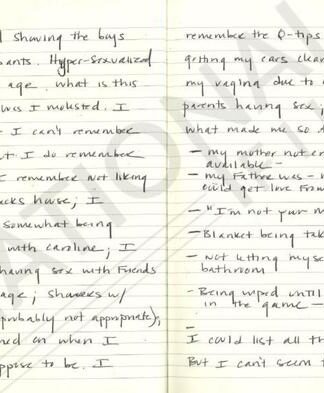 shaving the boys
pants. Hyper-sexualized
age. What is this
was I molested. I
I can't remember
I do remember
I remember not liking
house; I
somewhat being
with caroline; I
having sex with Friends
age; showers w/
probably not appropriate);
on when I
suppose to be. I
remember the Q-tips
getting my ears
my vagina due to
parents having sex;
what made me so
- my mother not
available -
- my Father was -
could get love From
- "I'm not your
- Blanket being
- not letting
bathroom
- Being wiped until
in the game -
-
I could list all
But I can't seem